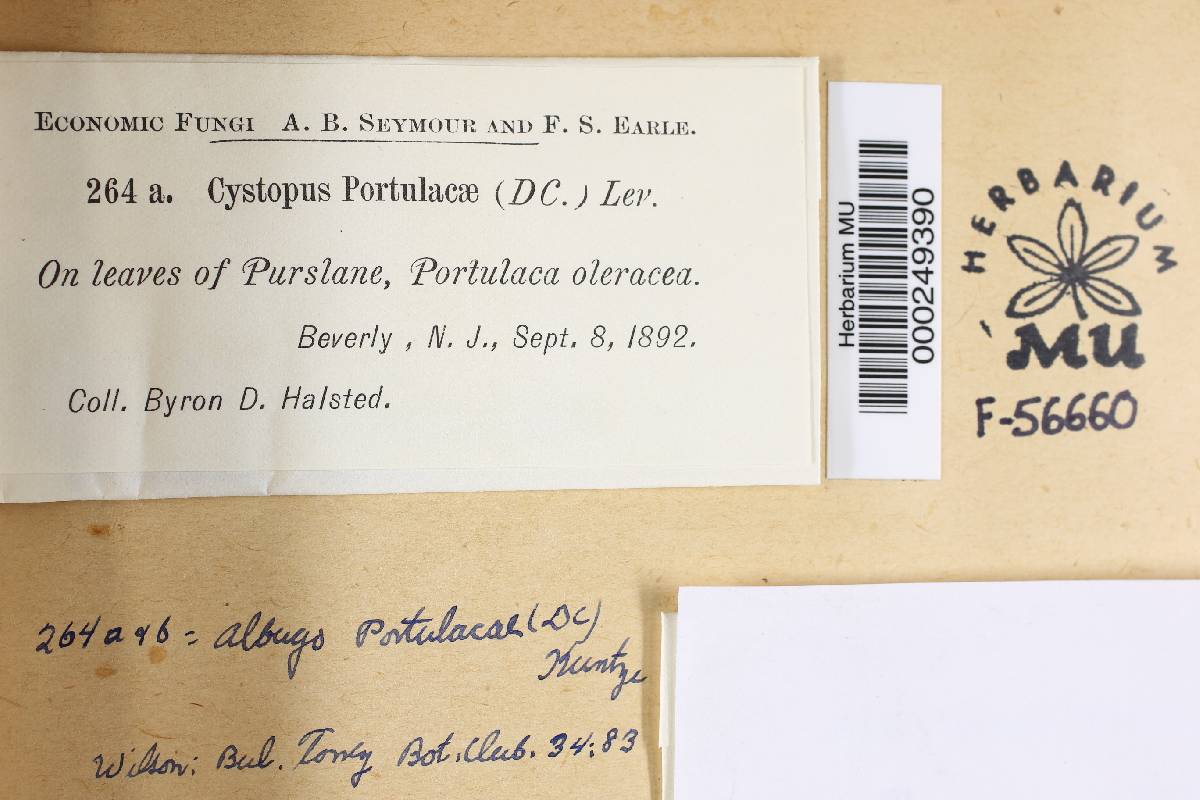 ECONOMIC FUNGI A. B. SEYMOUR AND F. S. EARLE.
264 a. Cystopus Portulacæ (DC.) Lev.
On leaves of Purslane, Portulaca oleracea.
Beverly , N. J., Sept. 8, 1892.
Coll. Byron D. Halsted.
Herbarium MU
000249390
HERBARIUM
MU
F-56660
264 a & b = Albugo Portulacae (DC)
Kuntze
Wilson: Bul. Torrey Bot. Club. 34:83